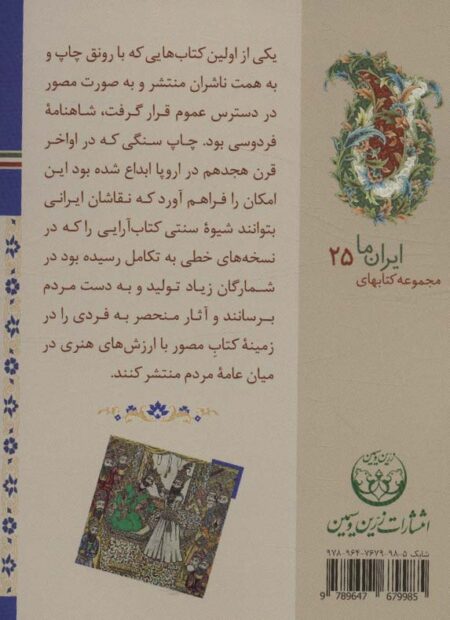 یکی از اولین کتاب‌هایی که با رونق چاپ و
به همت ناشران منتشر و به صورت مصور
در دسترس عموم قرار گرفت، شاهنامهٔ
فردوسی بود. چاپ سنگی که در اواخر
قرن هجدهم در اروپا ابداع شده بود این
امکان را فراهم آورد که نقاشان ایرانی
بتوانند شیوهٔ سنتی کتاب‌آرایی را که در
نسخه‌های خطی به تکامل رسیده بود در
شمارگان زیاد تولید و به دست مردم
برسانند و آثار منحصر به فردی را در
زمینهٔ کتابِ مصور با ارزش‌های هنری در
میان عامهٔ مردم منتشر کنند.
ایران ما ۲۵
مجموعه کتابهای
زرین و سیمین
انتشارات زرین و سیمین
شابک ۵-۹۸-۷۶۷۹-۹۶۴-۹۷۸
9 789647 679985